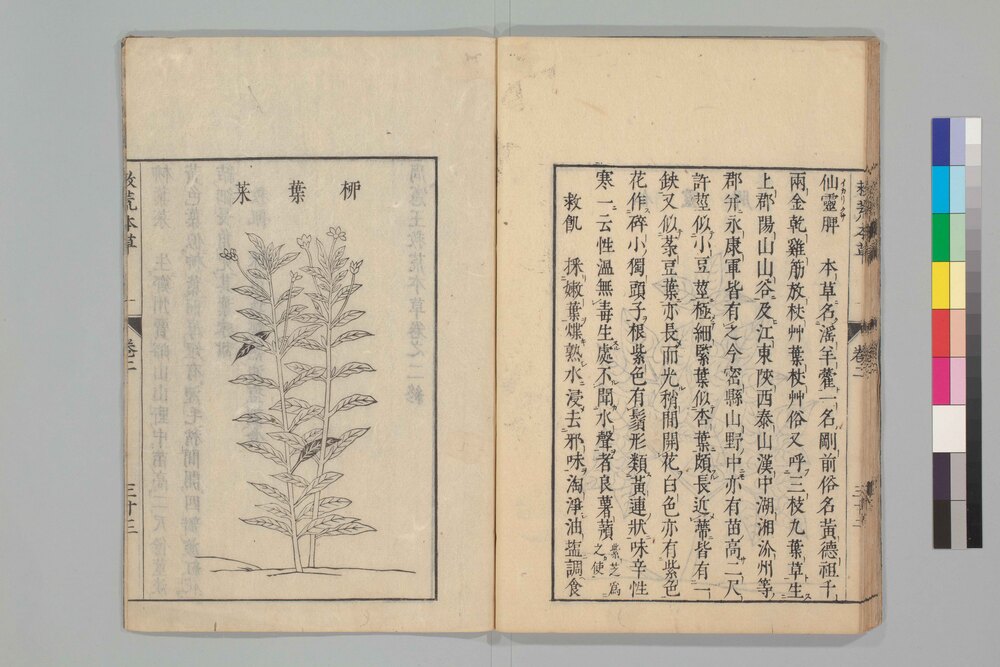 仙靈脾 本草名淫羊藿一名剛前俗名黃德祖千
兩金乾雞筋放杖艸葉杖艸俗又呼三枝九葉草生
上郡陽山山谷及江東陝西泰山漢中湖湘汾州等
郡并永康軍皆有之今密縣山野中亦有苗高二尺
許莖似小豆莖極細緊葉似杏葉頗長近蒂皆有一
缺又似菉豆葉亦長而光稍間開花白色亦有紫色
花作碎小獨頭子根紫色有鬚形類黃連狀味辛性
寒一云性溫無毒生處不聞水聲者良薯蕷紫芝爲之使
救飢 採嫩葉煠熟水浸去邪味淘淨油塩調食
柳葉菜
救荒本草 卷二 三十三